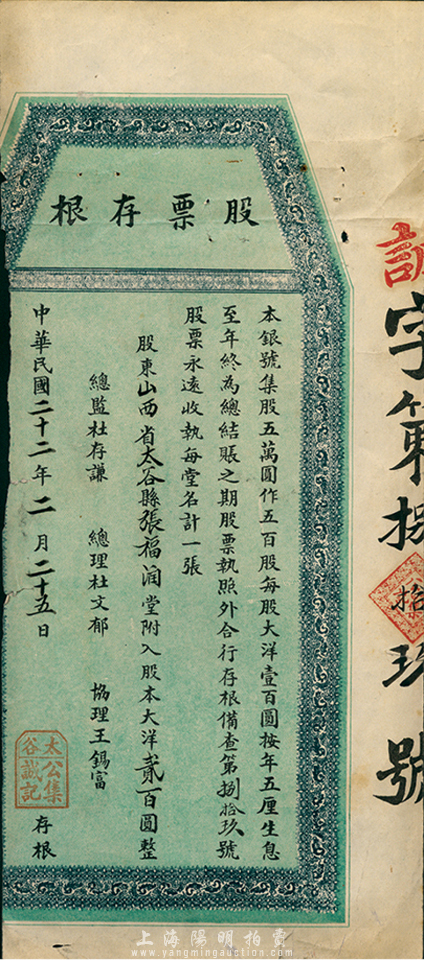 股票存根
本銀號集股五萬圓作五百股每股大洋壹百圓按年五厘生息
至年終為總結賬之期股票執照外合行存根備查第捌拾玖號
股票永遠收執每堂名計一張
股東山西省太谷縣張福潤堂附入股本大洋貳百圓整
總監杜存謙 總理杜文郁 協理王錫富
中華民國二十二年二月二十五日 存根
太谷公集誠記
字第捌拾玖號
上海陽明拍賣
www.yangmingauction.com